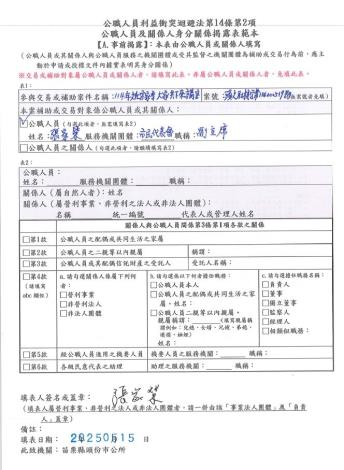 公職人員利益衝突迴避法第14條第2項
公職人員及關係人身分關係揭露表範本
【A.事前揭露】：本表由公職人員或關係人填寫
（公職人員或其關係人與公職人員服務之機關團體或受其監督之機關團體為補助或交易行為前，應主動於申請或投標文件內據實表明其身分關係）
※交易或補助對象屬公職人員或關係人者，請填寫此表。非屬公職人員或關係人者，免填此表。
表1：
參與交易或補助案件名稱：114年 案號：（無案號者免填）
本案補助或交易對象係公職人員或其關係人：
公職人員（勾選此項者，無需填寫表2）
姓名： 服務機關團體：代表會 職稱：副主席
□公職人員之關係人（勾選此項者，請繼續填寫表2）
表2：
公職人員：
姓名： 服務機關團體： 職稱：
關係人（屬自然人者）：姓名
關係人（屬營利事業、非營利之法人或非法人團體）：
名稱 統一編號 代表人或管理人姓名
關係人與公職人員間係第3條第1項各款之關係
□第1款 公職人員之配偶或共同生活之家屬
□第2款 公職人員之二親等以內親屬 稱謂：
□第3款 公職人員或其配偶信託財產之受託人 受託人名稱：
□第4款
（請填寫abc欄位）
a.請勾選關係人係屬下列何者：
□營利事業
□非營利法人
□非法人團體
b.請勾選係以下何者擔任職務：
□公職人員本人
□公職人員之配偶或共同生活之家屬。姓名：
□公職人員二親等以內親屬。
親屬稱謂：
姓名：
c.請勾選擔任職務名稱：
□負責人
□董事
□獨立董事
□監察人
□經理人
□相類似職務：
□第5款 經公職人員進用之機要人員 機要人員之服務機關： 職稱：
□第6款 各級民意代表之助理 助理之服務機關： 職稱：
填表人簽名或蓋章：
（填表人屬營利事業、非營利之法人或非法人團體者，請一併由該「事業法人團體」及「負責人」蓋章）
備註：
填表日期：20250515 日
此致機關：苗栗縣頭份市公所